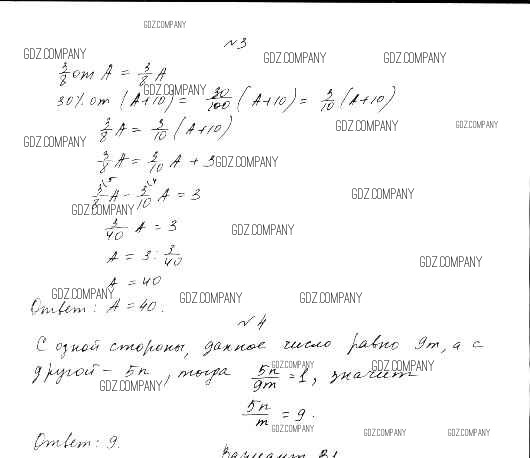 GDZ.COMPANY
№3
GDZ.COMPANY GDZ.COMPANY GDZ.COMPANY
3/8 от A = 3/8 A
GDZ.COMPANY
30% от (A+10) = 30/100 (A+10) = 3/10 (A+10)
GDZ.COMPANY GDZ.COMPANY
3/8 A = 3/10 (A+10)
GDZ.COMPANY
3/8 A = 3/10 A + 3
GDZ.COMPANY
3\5/8 A - 3\4/10 A = 3
GDZ.COMPANY
GDZ.COMPANY
3/40 A = 3
GDZ.COMPANY
A = 3 : 3/40
GDZ.COMPANY
A = 40
GDZ.COMPANY GDZ.COMPANY GDZ.COMPANY
Ответ: A = 40.
№4
С одной стороны, данное число равно 9m, а с
GDZ.COMPANY GDZ.COMPANY
другой - 5n, тогда 5n/9m = 1, значит
GDZ.COMPANY
5n/m = 9.
GDZ.COMPANY GDZ.COMPANY GDZ.COMPANY
Ответ: 9.
Вариант В1